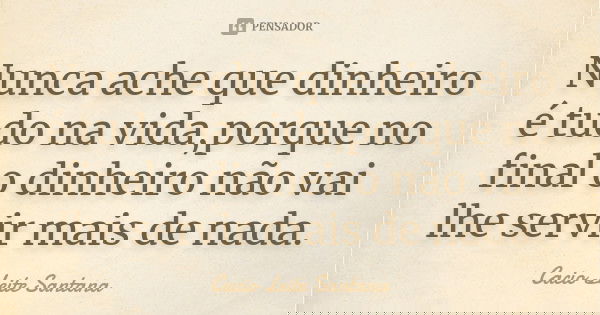 PENSADOR
Nunca ache que dinheiro
é tudo na vida,porque no
final o dinheiro não vai
lhe servir mais de nada.
Cacio Leite Santana